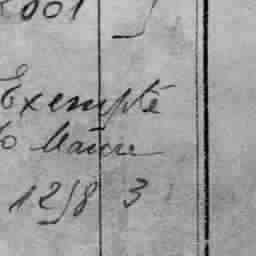 2001
Exempté
Maire
1258 3